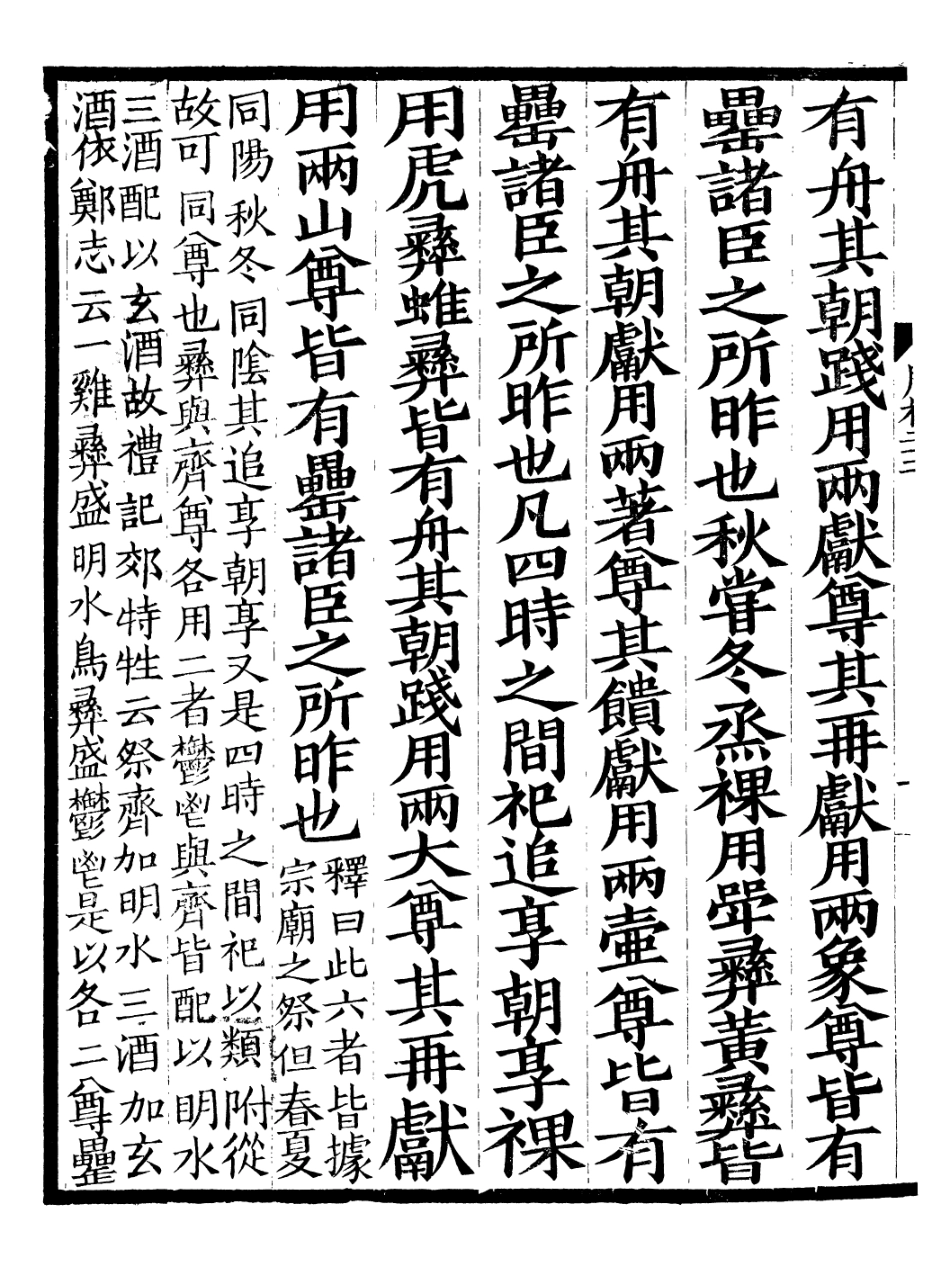 有舟其朝踐用兩獻尊其再獻用兩象尊皆有
罍諸臣之所昨也秋甞冬烝祼用斝彝黃彝皆
有舟其朝獻用兩著尊其饋獻用兩壷尊皆有
罍諸臣之所昨也凡四時之間祀追享朝享祼
用虎彝蜼彝皆有舟其朝踐用兩大尊其再獻
用兩山尊皆有罍諸臣之所昨也
釋曰此六者皆據
宗廟之祭但春夏
同陽秋冬同陰其追享朝享又是四時之間祀以類附從
故可同尊也彝與齊尊各用二者鬱鬯與齊皆配以明水
三酒配以玄酒故禮記郊特牲云祭齊加明水三酒加玄
酒依鄭志云一雞彝盛明水鳥彝盛鬱鬯是以各二尊罍